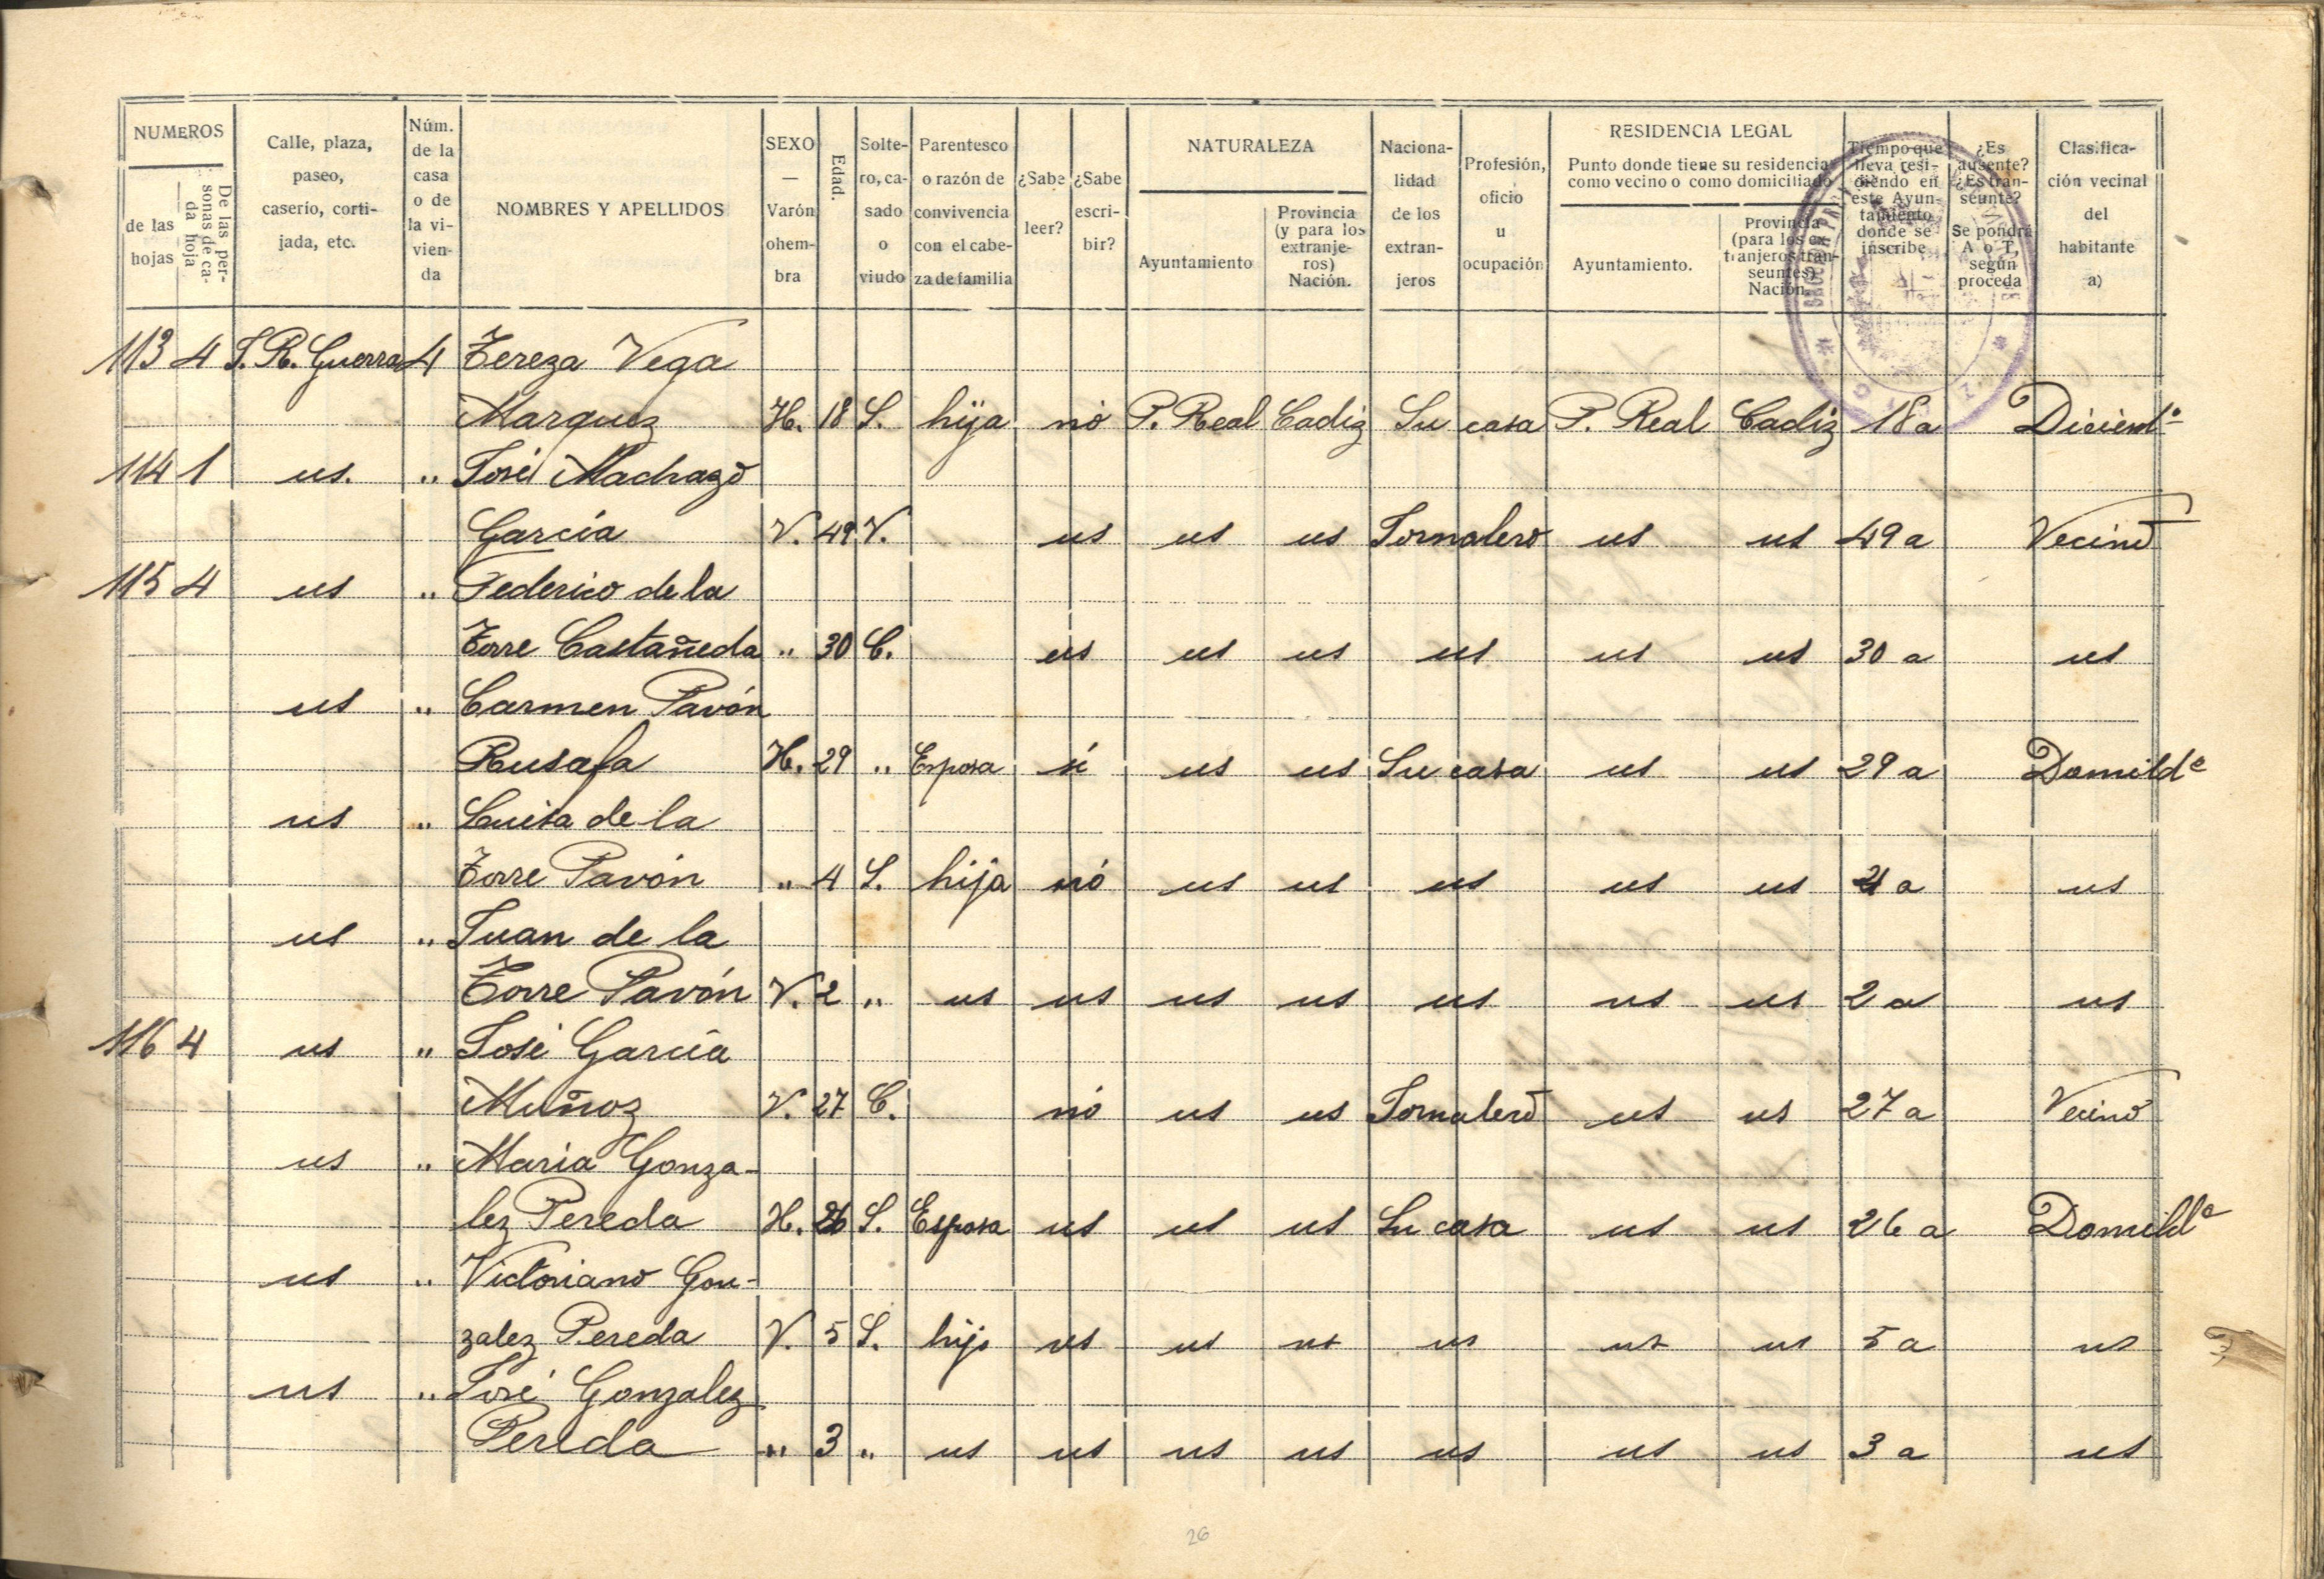 NUMEROS
de las hojas
De las personas de cada hoja
Calle, plaza, paseo, caserío, cortijada, etc.
Núm. de la casa o de la vivienda
NOMBRES Y APELLIDOS
SEXO — Varón ohembra
Edad.
Soltero, casado o viudo
Parentesco o razón de convivencia con el cabeza de familia
¿Sabe leer?
¿Sabe escribir?
NATURALEZA
Ayuntamiento
Provincia (y para los extranjeros) Nación.
Nacionalidad de los extranjeros
Profesión, oficio u ocupación
RESIDENCIA LEGAL
Punto donde tiene su residencia como vecino o como domiciliado
Ayuntamiento.
Provincia (para los extranjeros transeuntes) Nación.
Tiempo que lleva residiendo en este Ayuntamiento donde se inscribe
¿Es ausente? ¿Es transeunte? Se pondrá A o T, según proceda
Clasificación vecinal del habitante a)
113 4 S. R. Guerra 4 Tereza Vega
Marquez H. 18 S. hija nó P. Real Cadiz Su casa P. Real Cadiz 18 a
114 1 us. " José Madrazo
García V. 49 V. us us us Jornalero us us 49 a Vecino
115 4 us " Federico de la
Torre Castañeda " 30 C. us us us us us us 30 a us
us " Carmen Pavón
Rusafa H. 29 " Esposa sí us us Su casa us us 29 a Domilda
us " Luisa de la
Torre Pavón " 4 S. hija nó us us us us us 4 a us
us " Juan de la
Torre Pavón V. 2 " us us us us us us us 2 a us
116 4 us " José García
Muñoz V. 27 C. nó us us Jornalero us us 27 a Vecino
us " Maria Gonza-
lez Pereda H. 26 S. Esposa us us us Su casa us us 26 a Domilda
us " Victoriano Gon-
zalez Pereda V. 5 S. hijo us us us us us us 5 a us
us " José Gonzalez
Pereda " 3 " us us us us us us us 3 a us
26